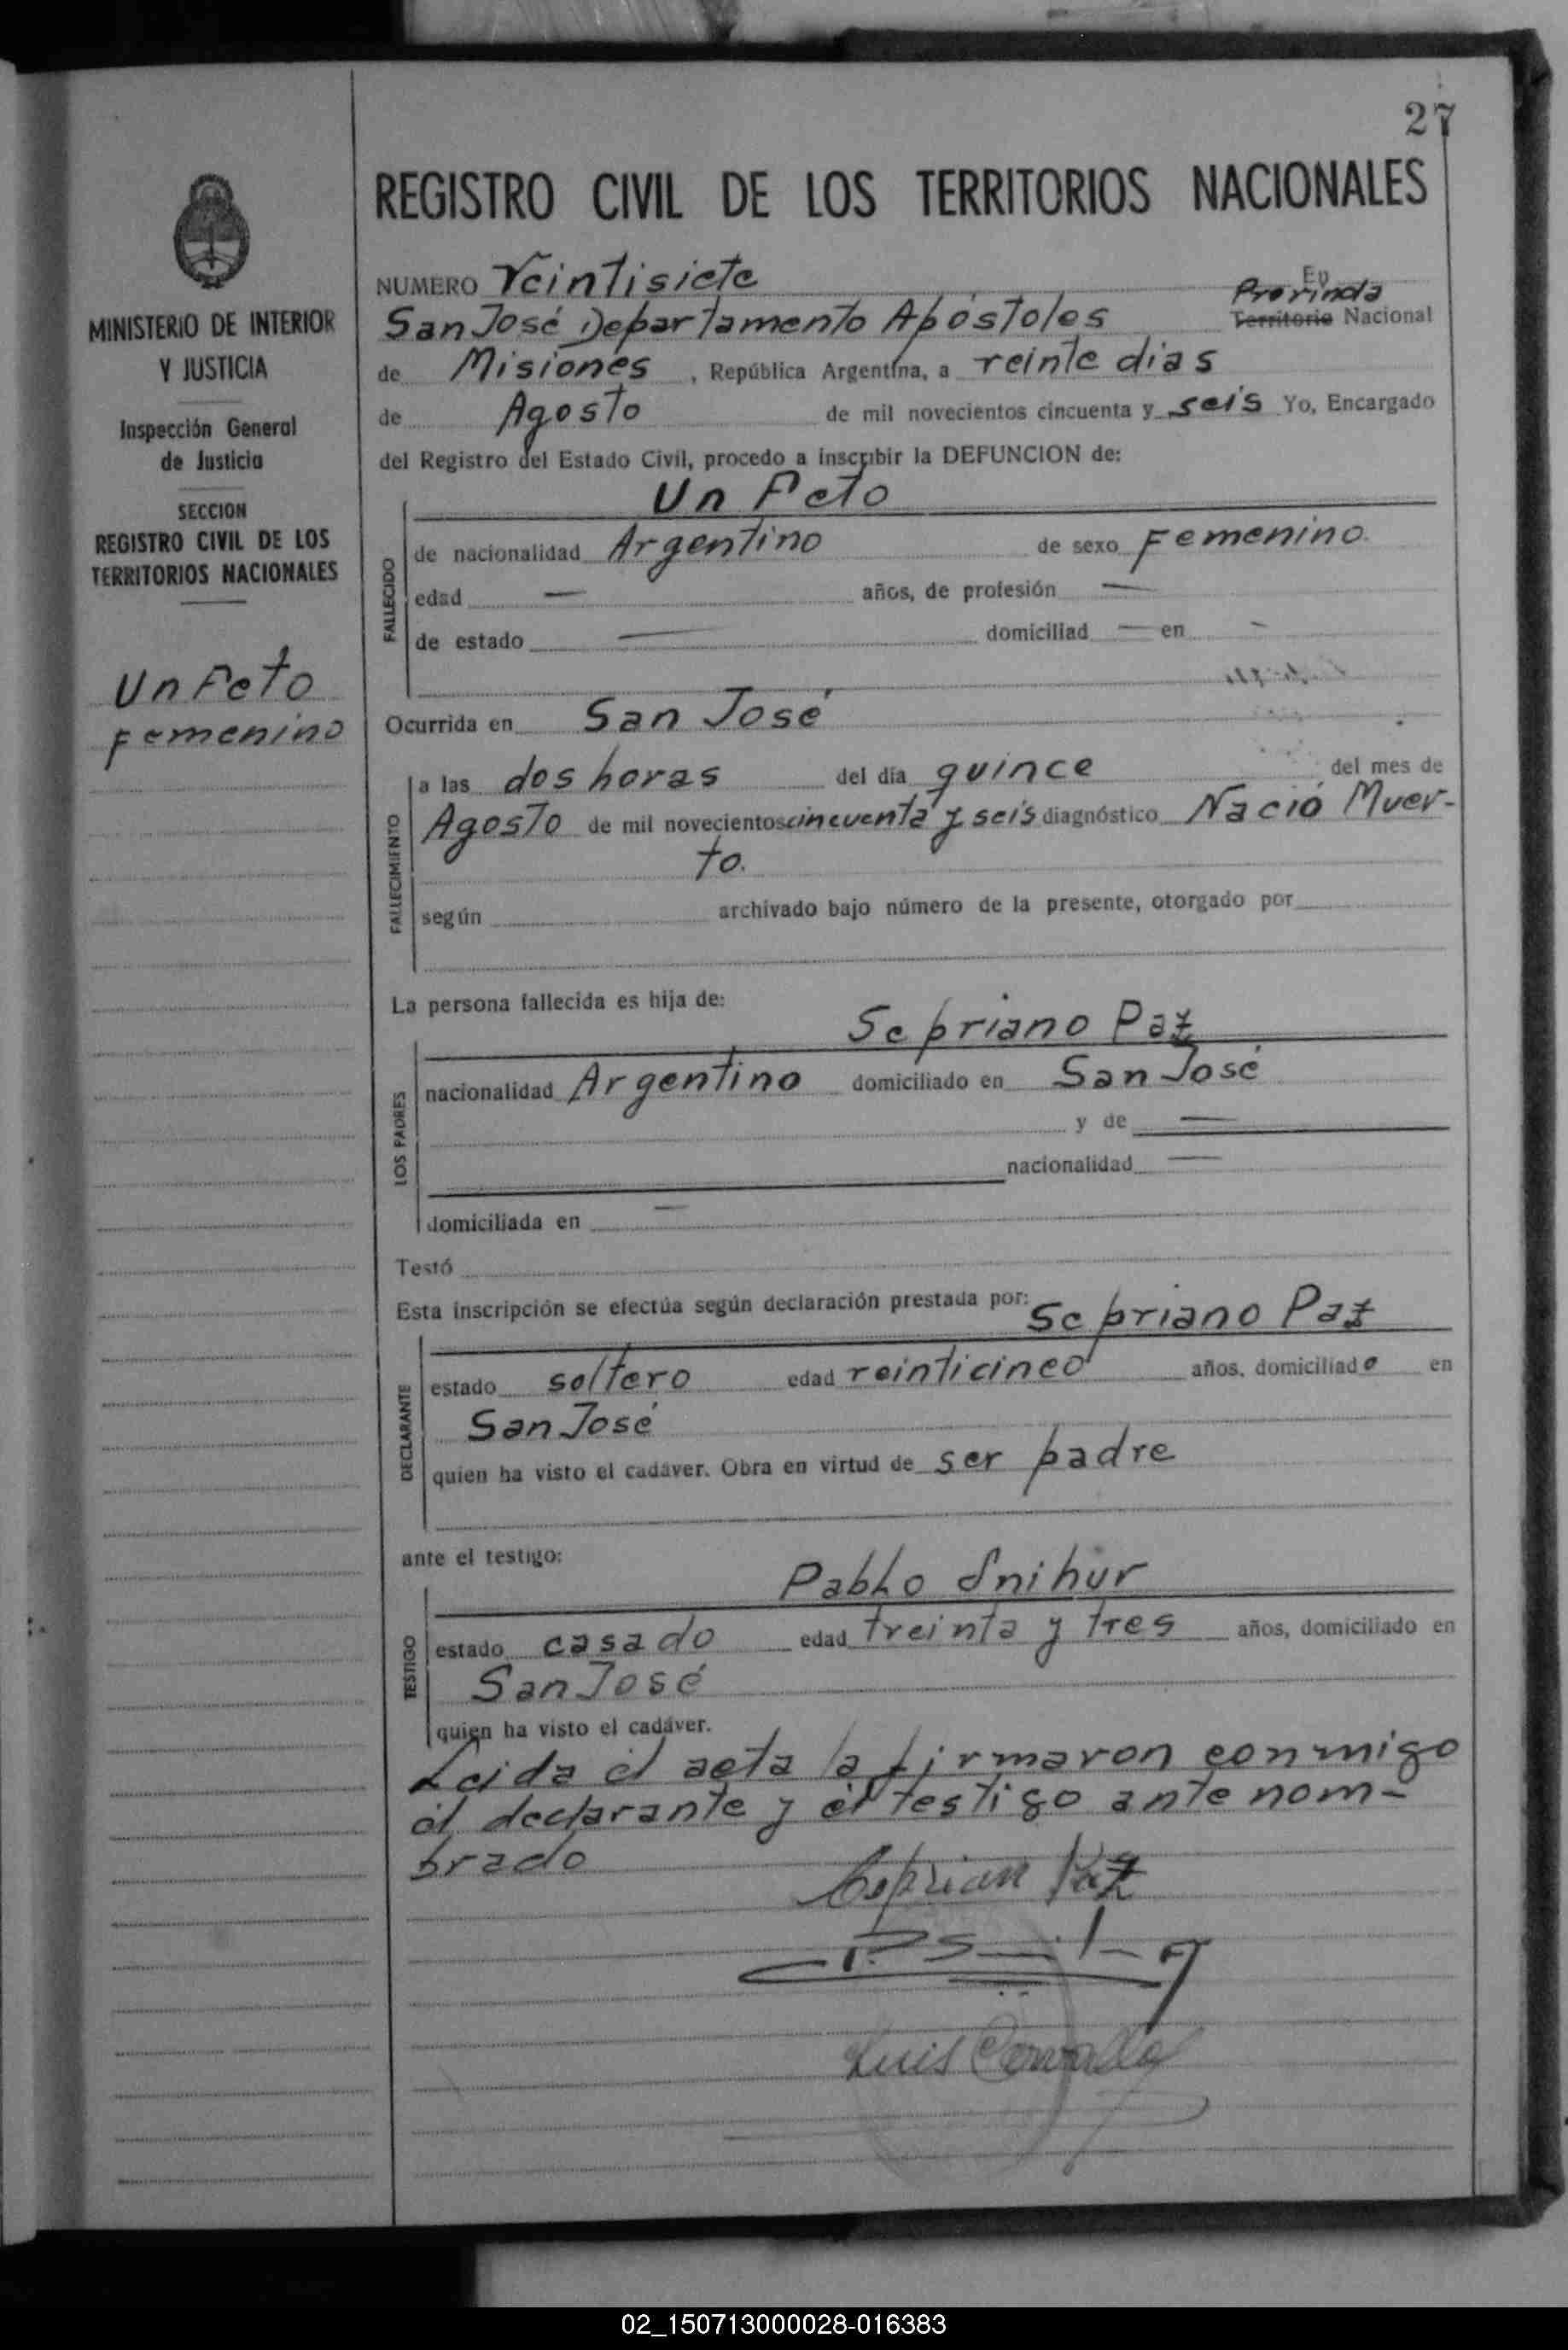 27
REGISTRO CIVIL DE LOS TERRITORIOS NACIONALES
MINISTERIO DE INTERIOR
Y JUSTICIA
Inspección General
de Justicia
SECCION
REGISTRO CIVIL DE LOS
TERRITORIOS NACIONALES
Un Feto
Femenino
NUMERO Veintisiete En
San José Departamento Apóstoles Provincia Territorio Nacional
de Misiones, República Argentina, a veinte dias
de Agosto de mil novecientos cincuenta y seis Yo, Encargado
del Registro del Estado Civil, procedo a inscribir la DEFUNCION de:
Un Feto
FALLECIDO
de nacionalidad Argentino de sexo Femenino.
edad — años, de profesión —
de estado — domiciliad — en -
Ocurrida en San José
FALLECIMIENTO
a las dos horas del día quince del mes de
Agosto de mil novecientos cincuenta y seis diagnóstico Nació Muer-
to.
según archivado bajo número de la presente, otorgado por
La persona fallecida es hija de:
LOS PADRES
Sepriano Paz
nacionalidad Argentino domiciliado en San José
y de —
nacionalidad —
domiciliada en —
Testó
Esta inscripción se efectúa según declaración prestada por:
DECLARANTE
Sepriano Paz
estado soltero edad veinticinco años, domiciliado en
San José
quien ha visto el cadáver. Obra en virtud de ser padre
ante el testigo:
TESTIGO
Pablo Snihur
estado casado edad treinta y tres años, domiciliado en
San José
quien ha visto el cadáver.
Leida el acta la firmaron conmigo
el declarante y el testigo ante nom-
brado
Ceprian Paz
Luis
02_150713000028-016383